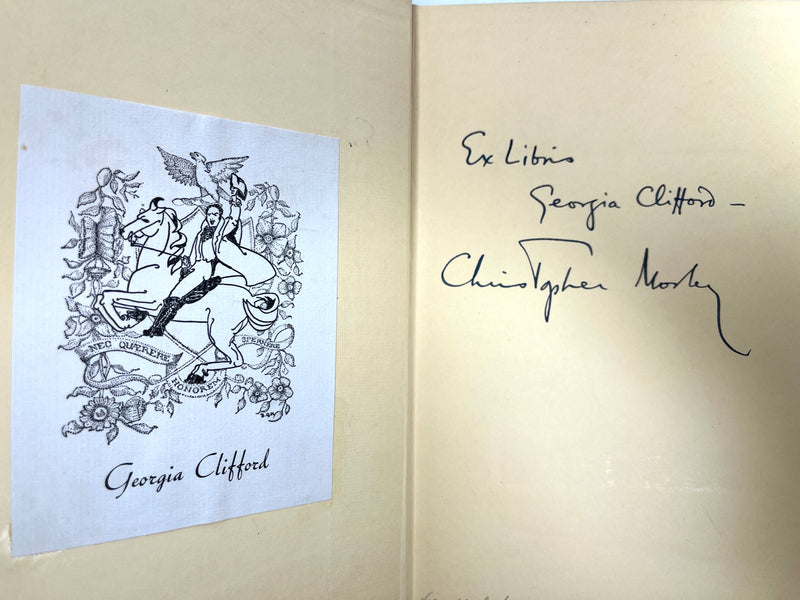 NEC QUÆRERE
HONOREM
SPERNERE
Georgia Clifford
Ex Libris
Georgia Clifford —
Christopher Morley